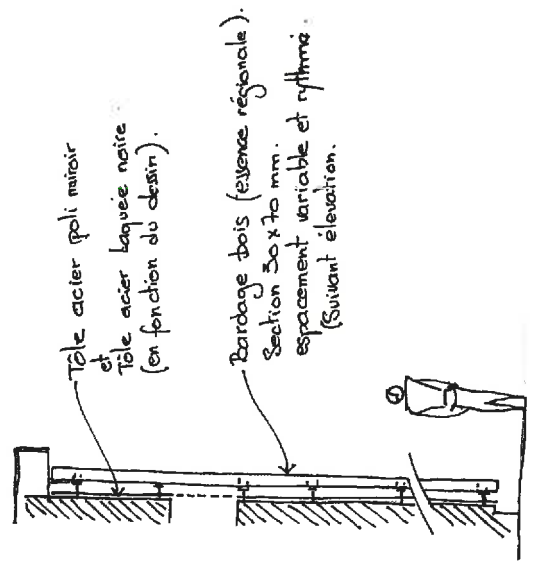 Tôle acier poli miroir
et
Tôle acier laquée noire
(en fonction du dessin).
Bardage bois (essence régionale).
Section 30x70 mm.
espacement variable et rythmé.
(Suivant élévation.